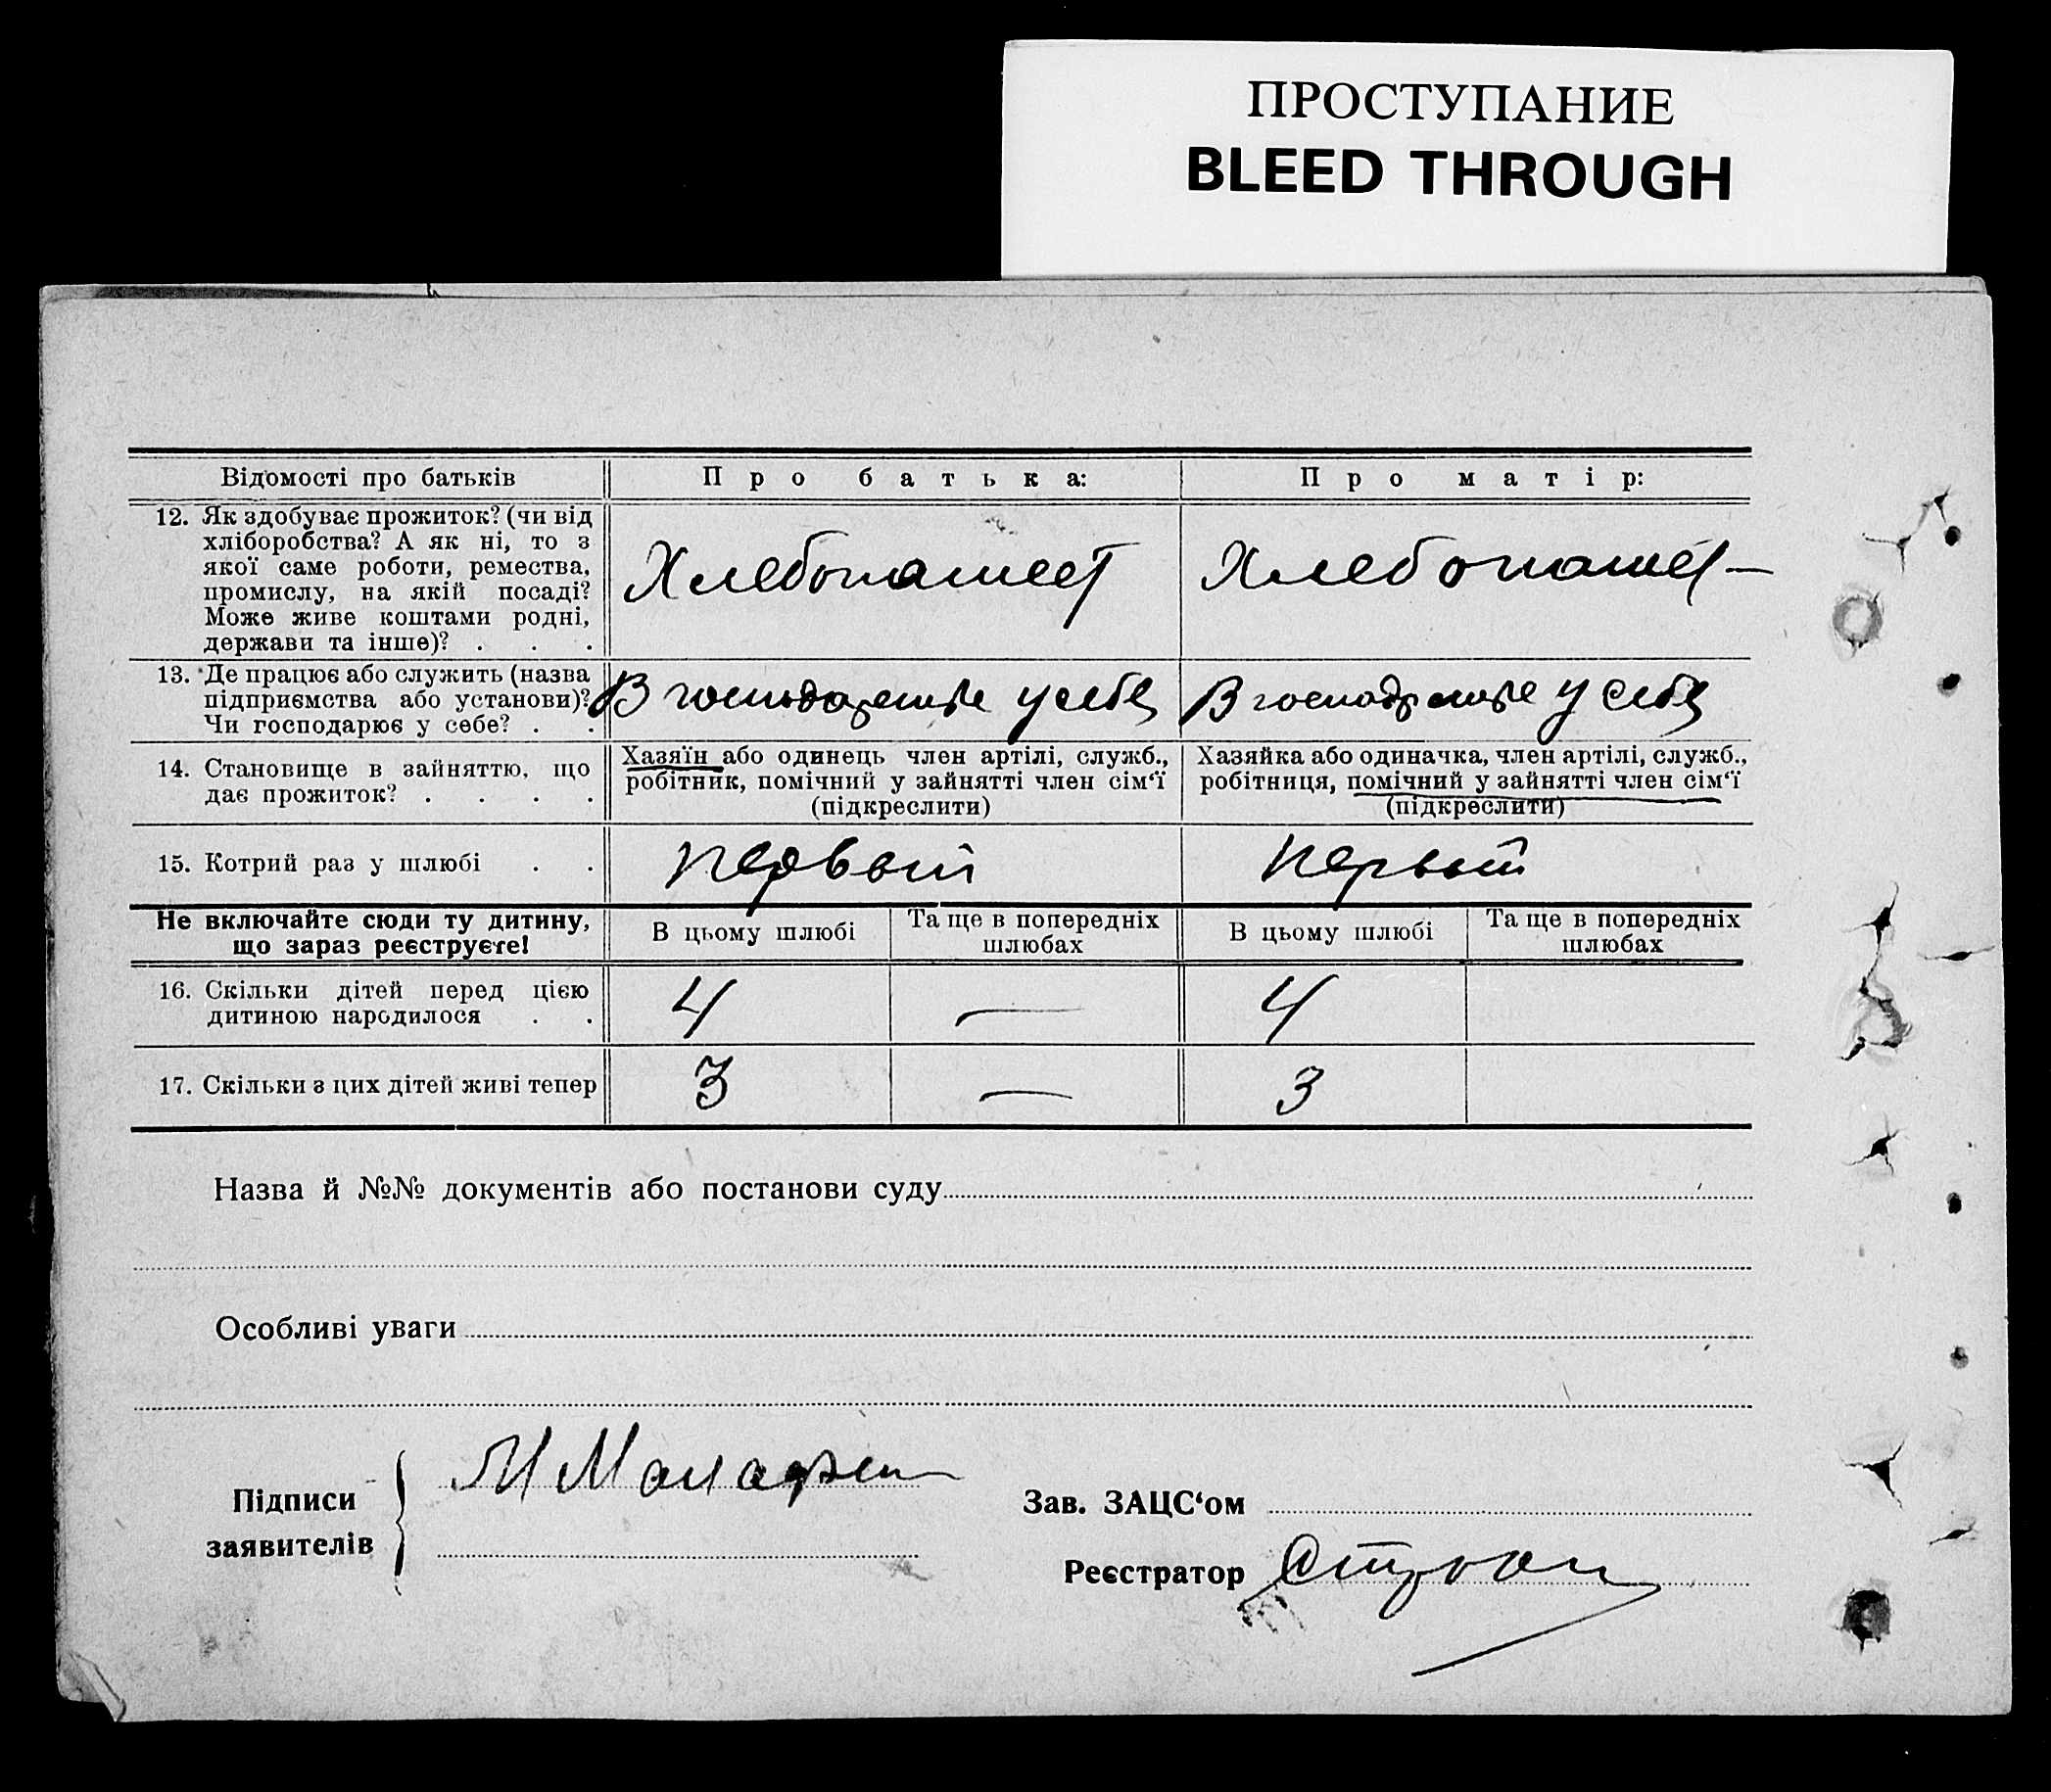 ПРОСТУПАНИЕ
BLEED THROUGH
Відомості про батьків
Про батька:
Про матір:
12. Як здобуває прожиток? (чи від
хліборобства? А як ні, то з
якої саме роботи, ремества,
промислу, на якій посаді?
Може живе коштами родні,
держави та інше)? . . .
Хлебопашест
Хлебопашес-
13. Де працює або служить (назва
підприємства або установи)?
Чи господарює у себе? . .
В у себя
В у себя
14. Становище в зайняттю, що
дає прожиток? . . . .
Хазяїн або одинець член артілі, служб.,
робітник, помічний у зайнятті член сім‘ї
(підкреслити)
Хазяйка або одиначка, член артілі, служб.,
робітниця, помічний у зайнятті член сім‘ї
(підкреслити)
15. Котрий раз у шлюбі . .
первый
первый
Не включайте сюди ту дитину,
що зараз реєструєте!
В цьому шлюбі
Та ще в попередніх
шлюбах
В цьому шлюбі
Та ще в попередніх
шлюбах
16. Скільки дітей перед цією
дитиною народилося . .
4
—
4
17. Скільки з цих дітей живі тепер
3
—
3
Назва й №№ документів або постанови суду
Особливі уваги
Підписи
заявителів
М
Зав. ЗАЦС‘ом
Реєстратор